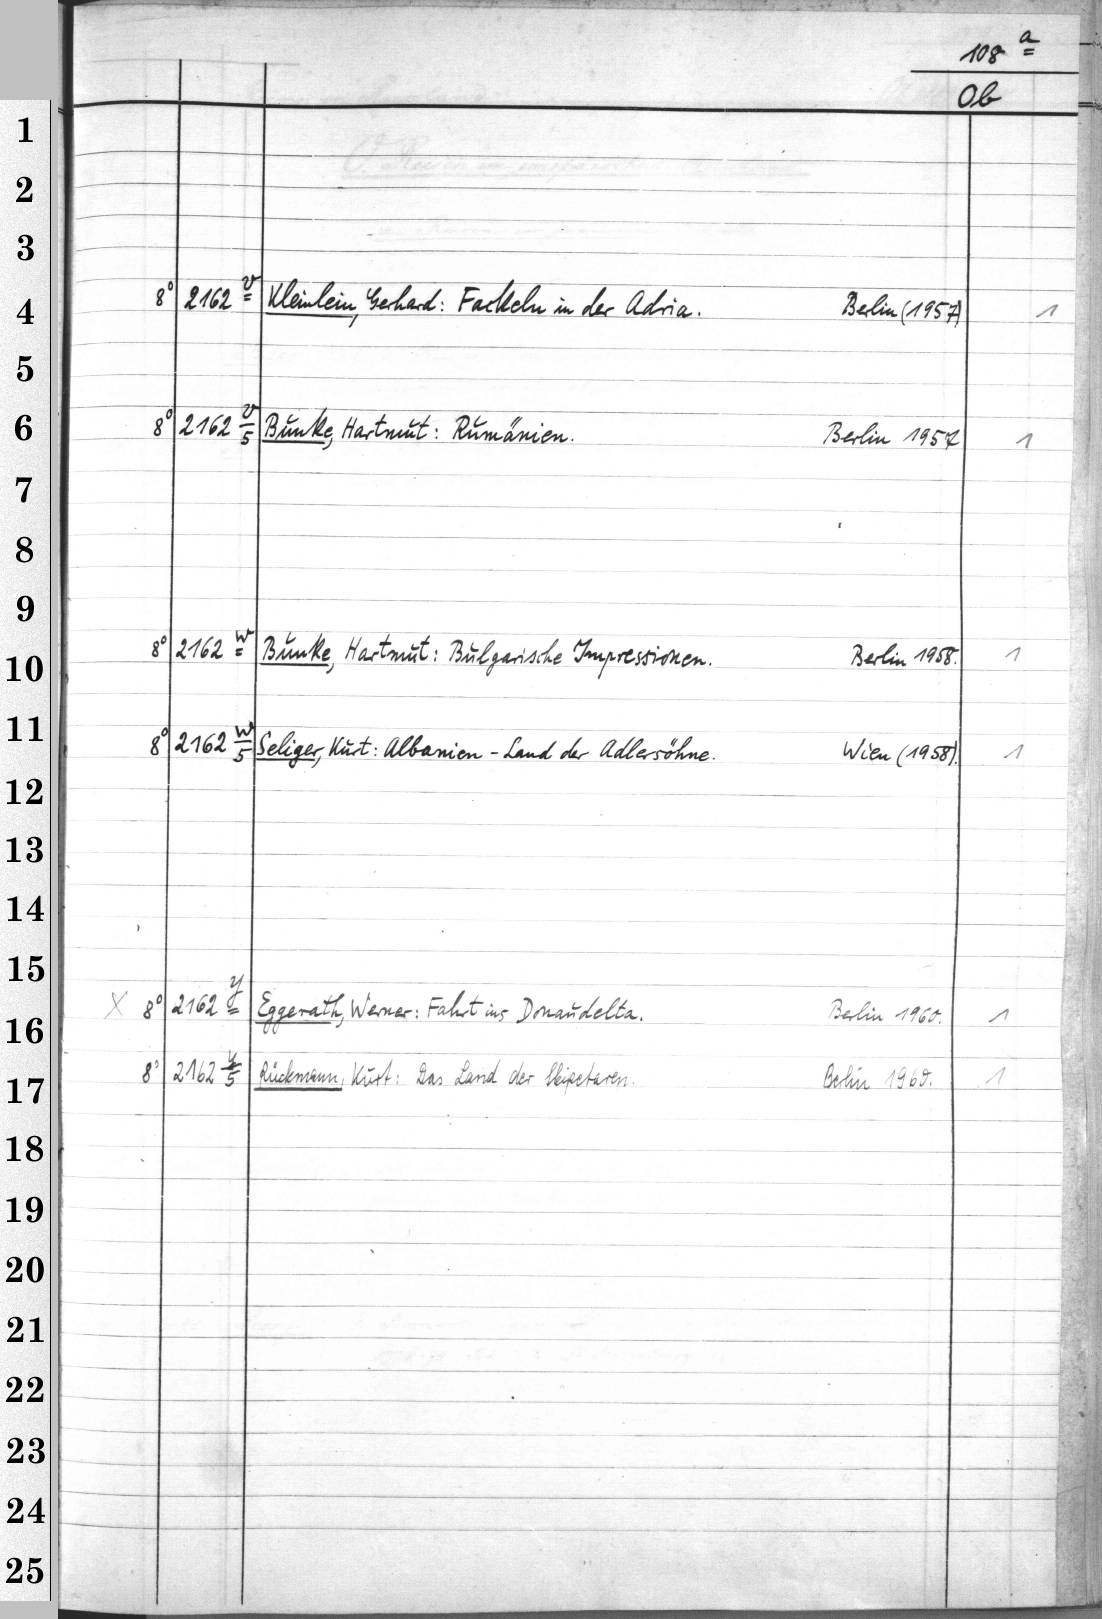 108 a
Ob
1
2
3
4 8° 2162 v Kleinlein, Gerhard: Fackeln in der Adria. Berlin (1957) 1
5
6 8° 2162 v/5 Bunke, Hartmut: Rumänien. Berlin 1957 1
7
8
9
10 8° 2162 w Bunke, Hartmut: Bulgarische Impressionen. Berlin 1958. 1
11 8° 2162 w/5 Seliger, Kurt: Albanien - Land der Adlersöhne. Wien (1958). 1
12
13
14
15
16 X 8° 2162 y Eggerath, Werner: Fahrt ins Donaudelta. Berlin 1960. 1
17 8° 2162 y/5 Rückmann, Kurt: Das Land der Skipetaren. Berlin 1960. 1
18
19
20
21
22
23
24
25